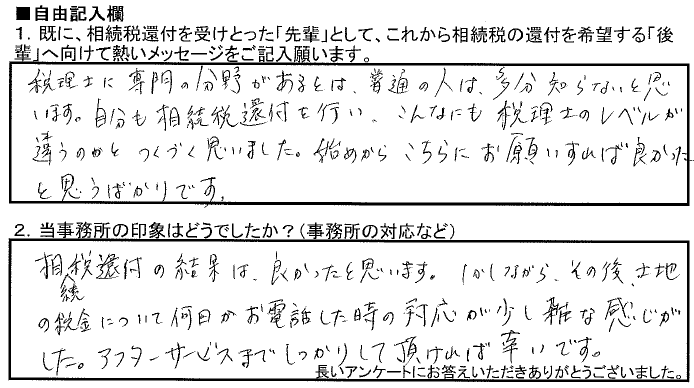 ■自由記入欄
1. 既に、相続税還付を受けとった「先輩」として、これから相続税の還付を希望する「後
輩」へ向けて熱いメッセージをご記入願います。
税理士に専門の分野があるとは、普通の人は、多分知らないと思
います。自分も相続税還付を行い、こんなにも税理士のレベルが
違うのかと つくづく思いました。始めから こちらにお願いすれば良かった
と思うばかりです。
2. 当事務所の印象はどうでしたか?(事務所の対応など)
相続税還付の結果は、良かったと思います。しかしながら、その後、土地
の税金について何日かお電話した時の対応が少し雑な感じが
した。アフターサービスまでしっかりして頂ければ幸いです。
長いアンケートにお答えいただきありがとうございました。